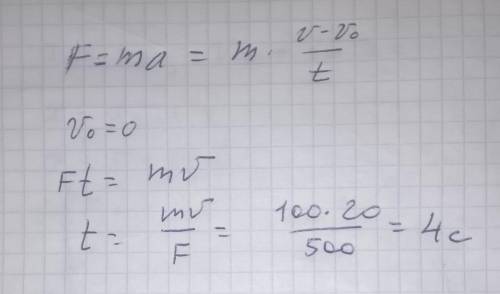 F = ma = m · (v - v₀)/t
v₀ = 0
Ft = mv
t = mv/F = 100·20/500 = 4с